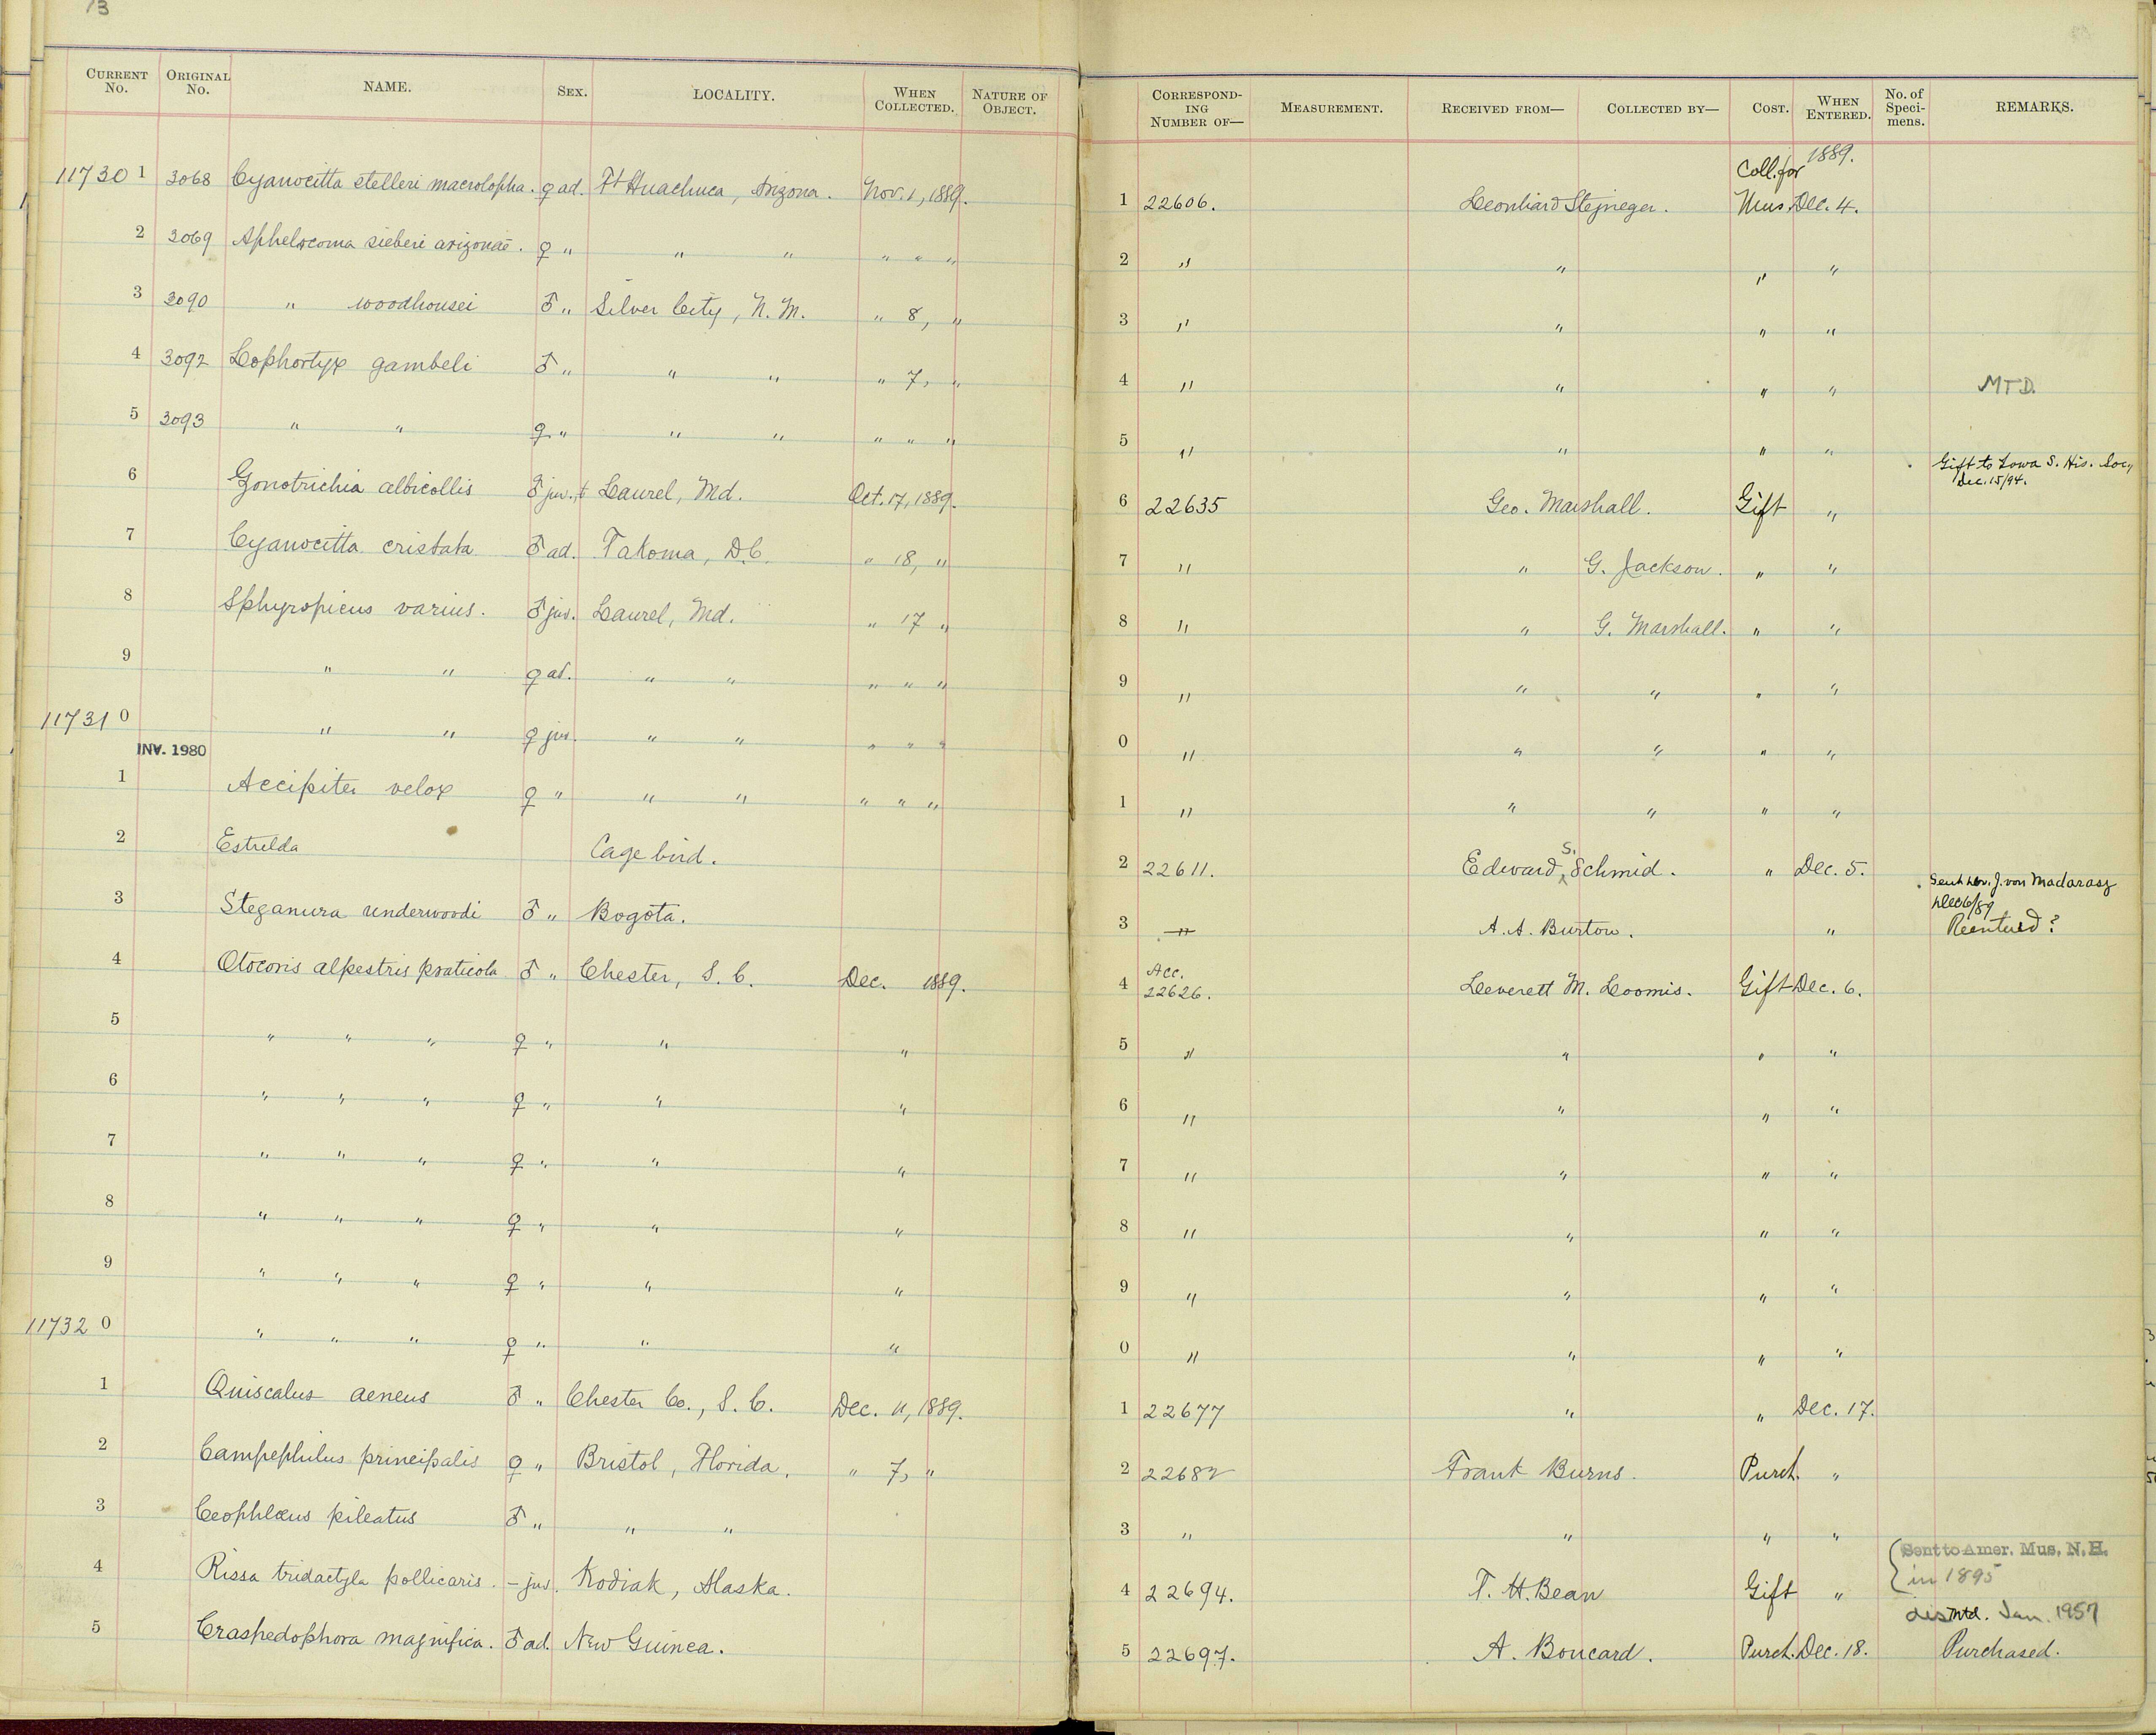 13
CURRENT No. ORIGINAL No. NAME. SEX. LOCALITY. WHEN COLLECTED. NATURE OF OBJECT.
11730 1 3068 Cyanocitta stelleri macrolopha. ♀ ad. Ft Huachuca, Arizona. Nov. 1, 1889.
2 3069 Aphelocoma sieberi arizonae. ♀ " " " " " "
3 3090 " woodhousei ♂ " Silver City, N. M. " 8, "
4 3092 Lophortyx gambeli ♂ " " " " 7, "
5 3093 " " ♀ " " " " " "
6 Zonotrichia albicollis ♂ juv. Laurel, Md. Oct. 17, 1889.
7 Cyanocitta cristata ♂ ad. Takoma, D.C. " 18, "
8 Sphyropicus varius. ♂ juv. Laurel, Md. " 17 "
9 " " ♀ ad. " " " " "
11731 0 " " ♀ juv. " " " " "
INV. 1980
1 Accipiter velox ♀ " " " " " "
2 Estrelda Cage bird.
3 Steganura underwoodi ♂ " Bogota.
4 Otocoris alpestris praticola ♂ " Chester, S. C. Dec. 1889.
5 " " " ♀ " " "
6 " " " ♀ " " "
7 " " " ♀ " " "
8 " " " ♀ " " "
9 " " " ♀ " " "
11732 0 " " " ♀ " " "
1 Quiscalus aeneus ♂ " Chester Co., S. C. Dec. 11, 1889.
2 Campephilus principalis ♀ " Bristol, Florida. " 7, "
3 Ceophloeus pileatus ♂ " " "
4 Rissa tridactyla pollicaris. – juv. Kodiak, Alaska.
5 Craspedophora magnifica. ♂ ad. New Guinea.
CORRESPONDING NUMBER OF— MEASUREMENT. RECEIVED FROM— COLLECTED BY— COST. WHEN ENTERED. No. of Specimens. REMARKS.
Coll. for 1889.
1 22606. Leonhard Stejneger. Mus. Dec. 4.
2 " " " "
3 " " " "
4 " " " " MTD.
5 " " " "
Gift to Iowa S. His. Soc,
Dec. 15/94.
6 22635 Geo. Marshall. Gift "
7 " " G. Jackson. " "
8 " " G. Marshall. " "
9 " " " " "
0 " " " " "
1 " " " " "
2 22611. Edward S. Schmid. " Dec. 5.
J. von Madarasz
Dec 6/89
3 " A. A. Burton. " Reentered?
4 Acc. 22626. Leverett M. Loomis. Gift Dec. 6.
5 " " " "
6 " " " "
7 " " " "
8 " " " "
9 " " " "
0 " " " "
1 22677 " " Dec. 17.
2 22682 Frank Burns. Purch. "
3 " " " "
Sent to Amer. Mus. N. H.
in 1895
4 22694. T. H. Bean Gift "
dismtd. Jan. 1957
5 22697. A. Boucard. Purch. Dec. 18. Purchased.